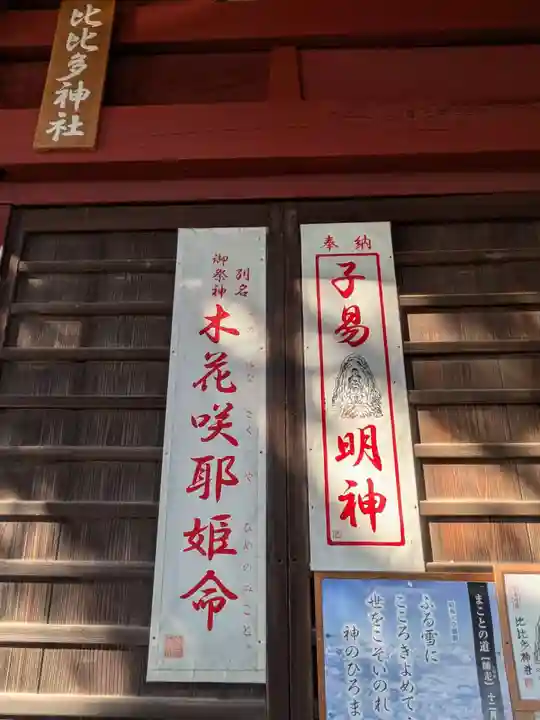 比比多神社
奉納
子易
明神
別名
御祭神
木花咲耶姫命
まことの道【師走】十二月
ふる雪に
こころきよめて
世をこそいのれ
神のひろま
比比多神社